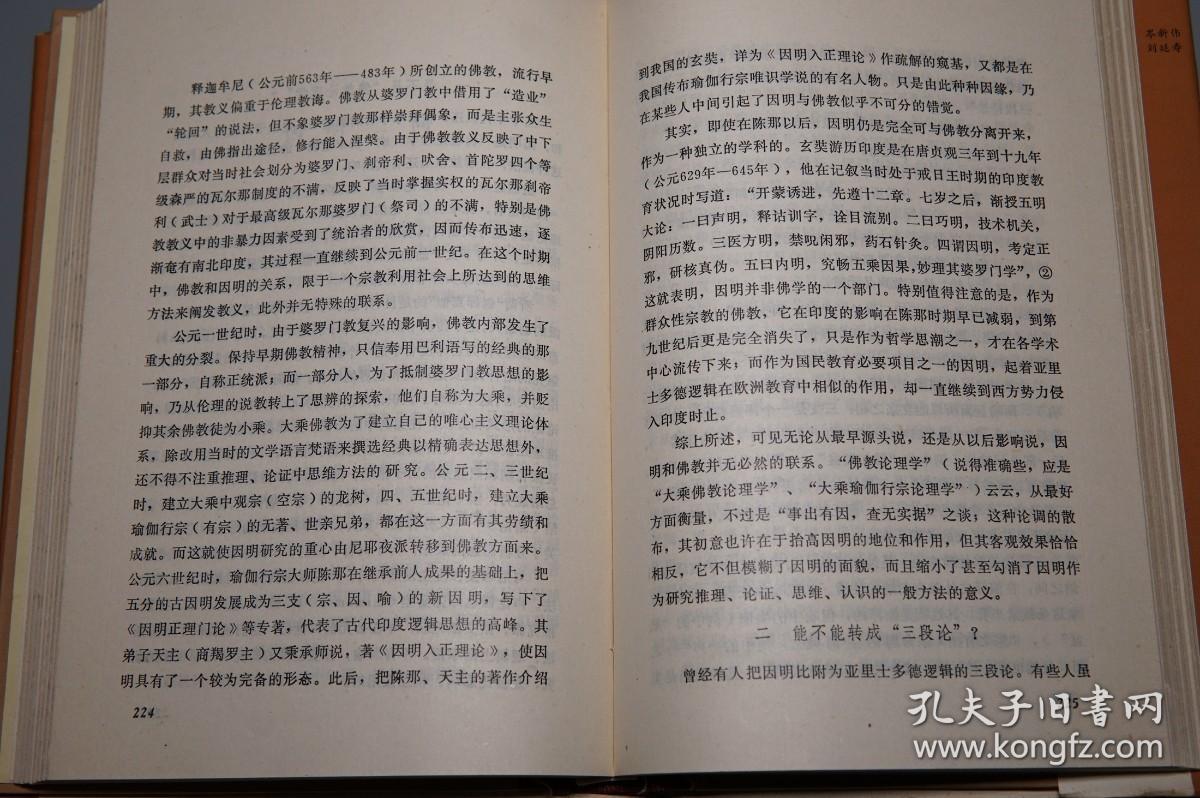 释迦牟尼（公元前563年——483年）所创立的佛教，流行早
期，其教义偏重于伦理教诲。佛教从婆罗门教中借用了“造业”
“轮回”的说法，但不象婆罗门教那样崇拜偶象，而是主张众生
自救，由佛指出途径，修行能入涅槃。由于佛教教义反映了中下
层群众对当时社会划分为婆罗门、刹帝利、吠舍、首陀罗四个等
级森严的瓦尔那制度的不满，反映了当时掌握实权的瓦尔那刹帝
利（武士）对于最高级瓦尔那婆罗门（祭司）的不满，特别是佛
教教义中的非暴力因素受到了统治者的欣赏，因而传布迅速，逐
渐奄有南北印度，其过程一直继续到公元前一世纪。在这个时期
中，佛教和因明的关系，限于一个宗教利用社会上所达到的思维
方法来阐发教义，此外并无特殊的联系。
公元一世纪时，由于婆罗门教复兴的影响，佛教内部发生了
重大的分裂。保持早期佛教精神，只信奉用巴利语写的经典的那
一部分，自称正统派；而一部分人，为了抵制婆罗门教思想的影
响，乃从伦理的说教转上了思辨的探索，他们自称为大乘，并贬
抑其余佛教徒为小乘。大乘佛教为了建立自己的唯心主义理论体
系，除改用当时的文学语言梵语来撰选经典以精确表达思想外，
还不得不注重推理、论证中思维方法的研究。公元二、三世纪
时，建立大乘中观宗（空宗）的龙树，四、五世纪时，建立大乘
瑜伽行宗（有宗）的无著、世亲兄弟，都在这一方面有其劳绩和
成就。而这就使因明研究的重心由尼耶夜派转移到佛教方面来。
公元六世纪时，瑜伽行宗大师陈那在继承前人成果的基础上，把
五分的古因明发展成为三支（宗、因、喻）的新因明，写下了
《因明正理门论》等专著，代表了古代印度逻辑思想的高峰。其
弟子天主（商羯罗主）又秉承师说，著《因明入正理论》，使因
明具有了一个较为完备的形态。此后，把陈那、天主的著作介绍
224
到我国的玄奘，详为《因明入正理论》作疏解的窥基，又都是在
我国传布瑜伽行宗唯识学说的有名人物。只是由此种种因缘，乃
在某些人中间引起了因明与佛教似乎不可分的错觉。
其实，即使在陈那以后，因明仍是完全可与佛教分离开来，
作为一种独立的学科的。玄奘游历印度是在唐贞观三年到十九年
（公元629年—645年），他在记叙当时处于戒日王时期的印度教
育状况时写道：“开蒙诱进，先遵十二章。七岁之后，渐授五明
大论：一曰声明，释诂训字，诠目流别。二曰巧明，技术机关，
阴阳历数。三医方明，禁呪闲邪，药石针灸。四谓因明，考定正
邪，研核真伪。五曰内明，究畅五乘因果，妙理其婆罗门学”，②
这就表明，因明并非佛学的一个部门。特别值得注意的是，作为
群众性宗教的佛教，它在印度的影响在陈那时期早已减弱，到第
九世纪后更是完全消失了，只是作为哲学思潮之一，才在各学术
中心流传下来；而作为国民教育必要项目之一的因明，起着亚里
士多德逻辑在欧洲教育中相似的作用，却一直继续到西方势力侵
入印度时止。
综上所述，可见无论从最早源头说，还是从以后影响说，因
明和佛教并无必然的联系。“佛教论理学”（说得准确些，应是
“大乘佛教论理学”、“大乘瑜伽行宗论理学”）云云，从最好
方面衡量，不过是“事出有因，查无实据”之谈；这种论调的散
布，其初意也许在于抬高因明的地位和作用，但其客观效果恰恰
相反，它不但模糊了因明的面貌，而且缩小了甚至勾消了因明作
为研究推理、论证、思维、认识的一般方法的意义。
二 能不能转成“三段论”？
曾经有人把因明比附为亚里士多德逻辑的三段论。有些人虽
岑新伟
刘廷寿
孔夫子旧书网
www.kongfz.com